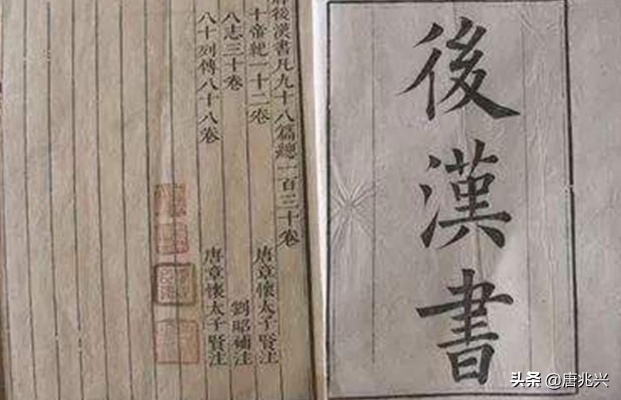 後漢書
後漢書凡九十八篇總一百三十卷
十帝紀一十二卷 唐章懷太子賢注
八志三十卷 劉昭補注
八十列傳八十八卷 唐章懷太子賢注
头条 @唐兆兴